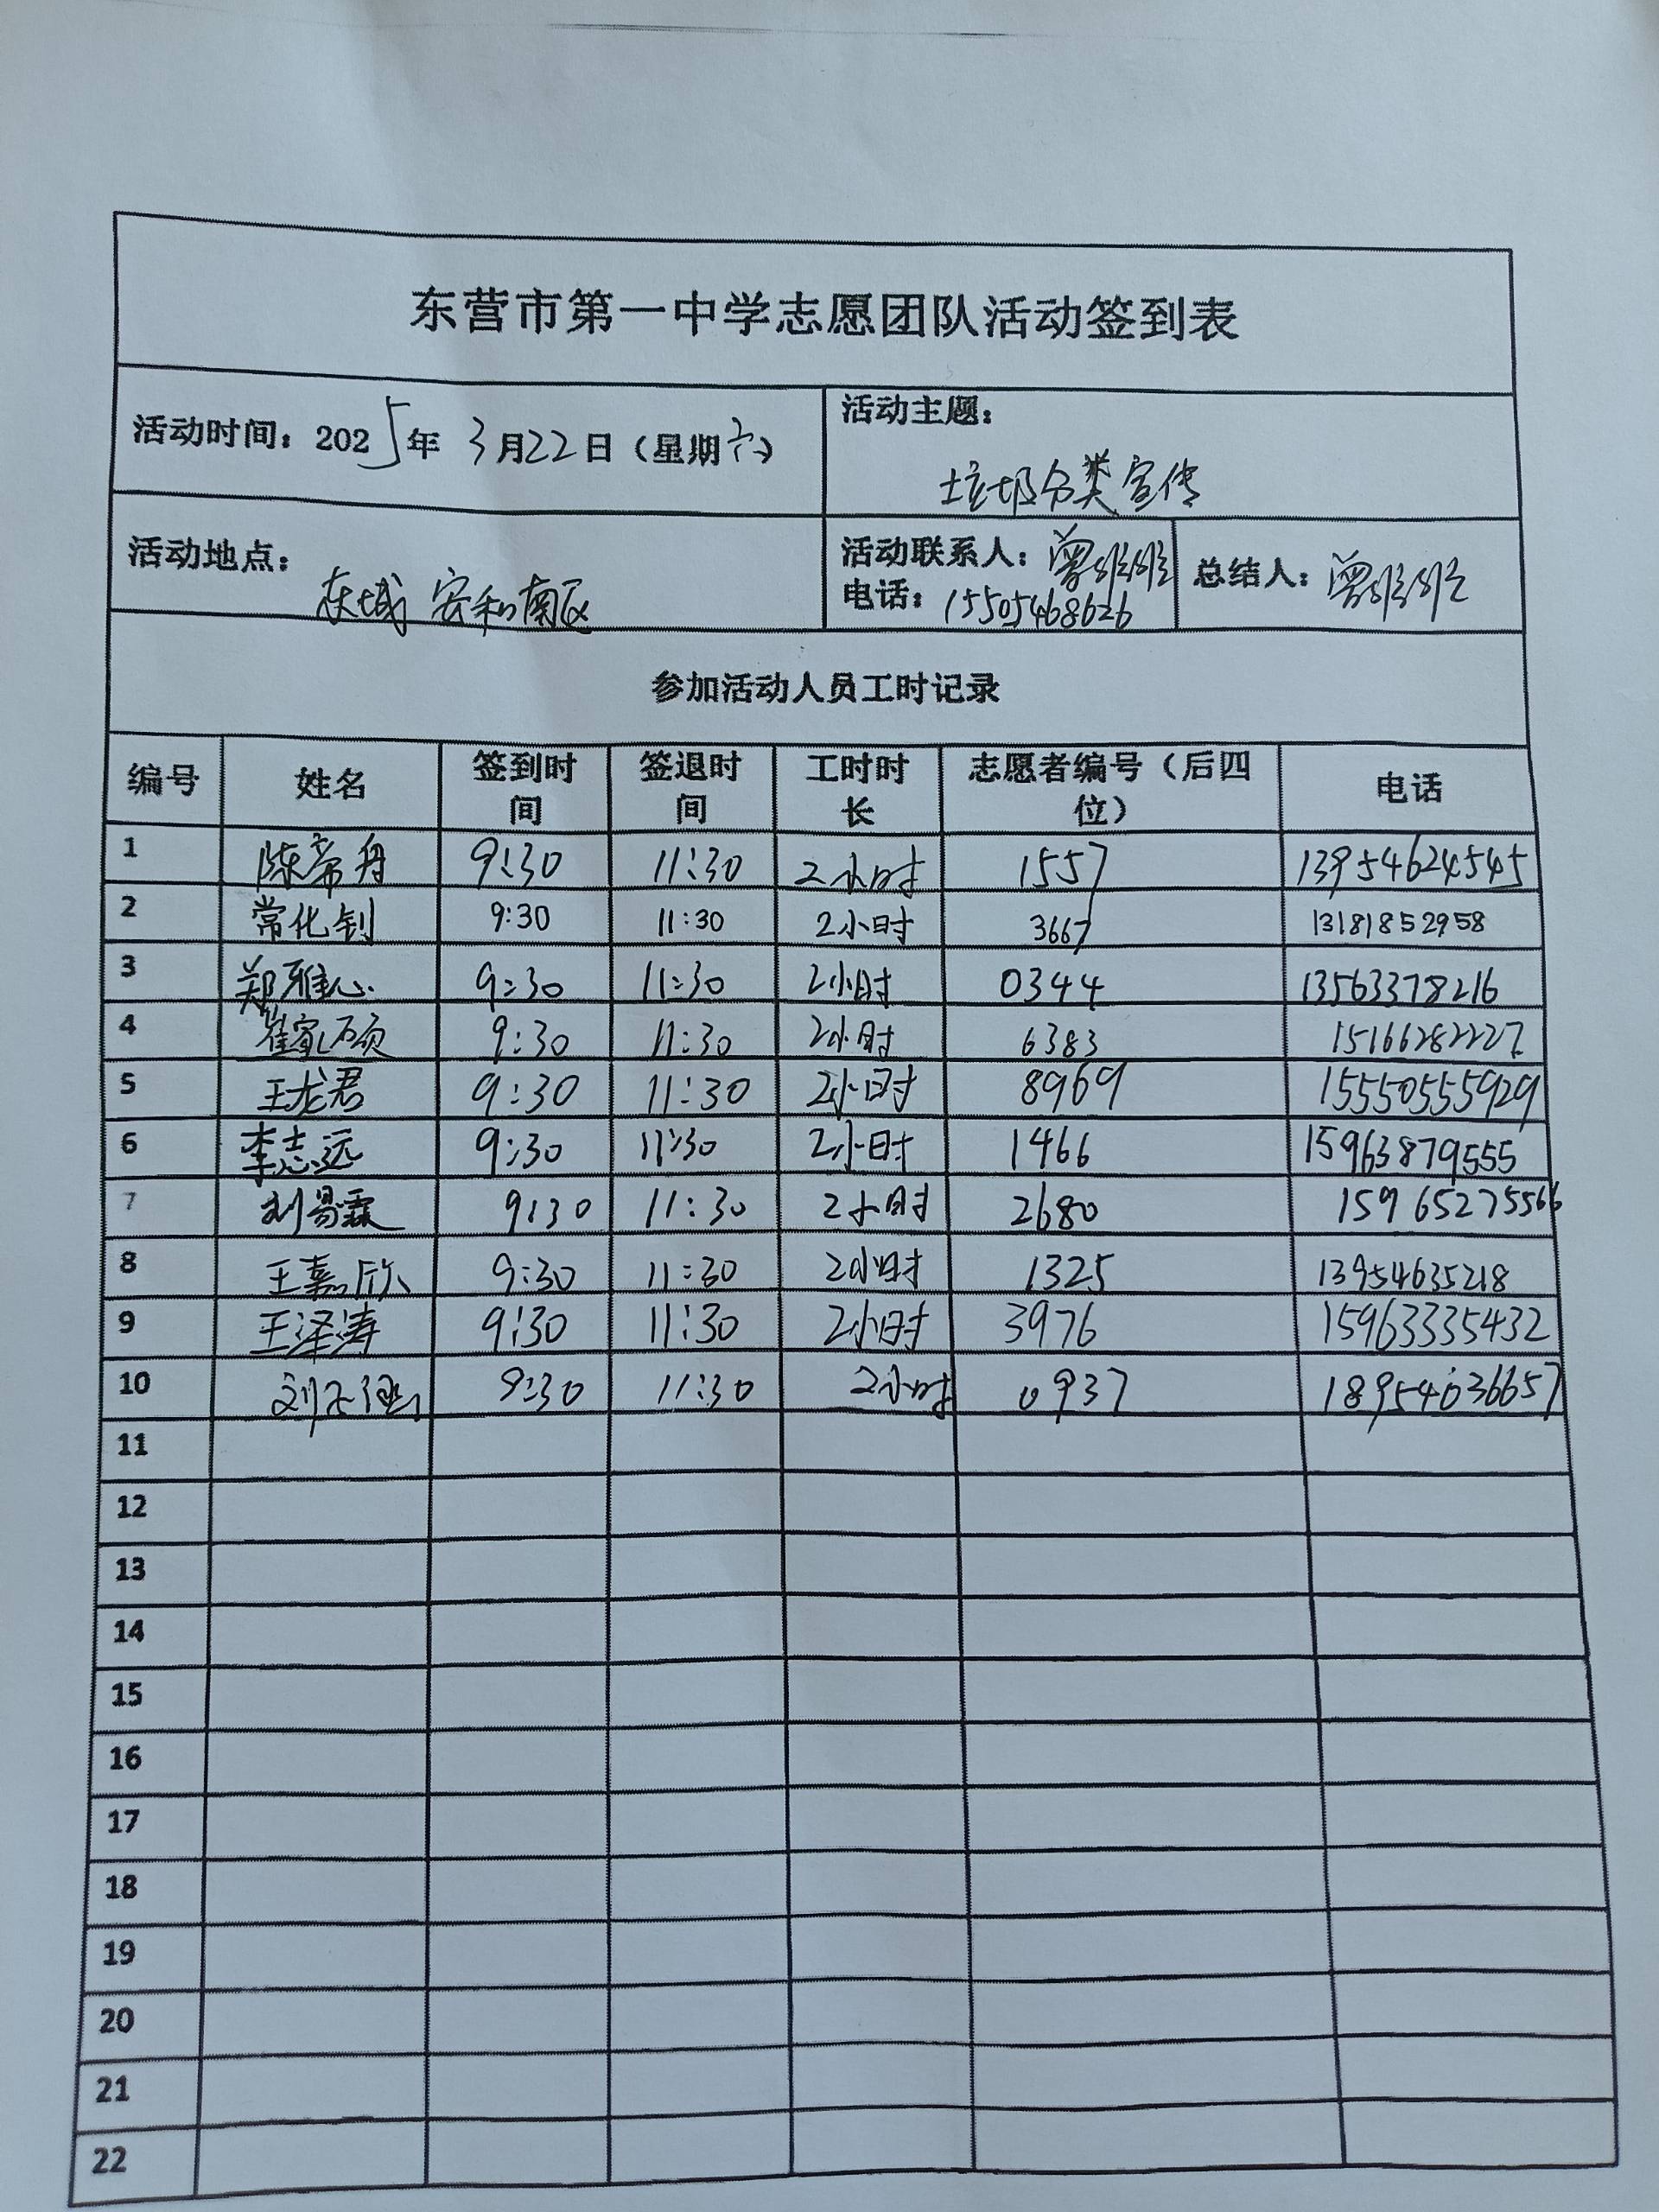 东营市第一中学志愿团队活动签到表
活动时间：2025年 3月22日（星期六）
活动主题：
垃圾分类宣传
活动地点：
东城 安和南区
活动联系人：曾
电话：15505468626
总结人：曾
参加活动人员工时记录
编号 姓名 签到时间 签退时间 工时时长 志愿者编号（后四位） 电话
1 陈希舟 9:30 11:30 2小时 1557 13954624545
2 常化钊 9:30 11:30 2小时 3667 13181852958
3 郑雅心 9:30 11:30 2小时 0344 13563378216
4 崔家硕 9:30 11:30 2小时 6383 15166282227
5 王龙君 9:30 11:30 2小时 8969 15550555929
6 李志远 9:30 11:30 2小时 1466 15963879555
7 刘易霖 9:30 11:30 2小时 2680 15965275566
8 王嘉欣 9:30 11:30 2小时 1325 13954635218
9 王泽涛 9:30 11:30 2小时 3976 15963335432
10 刘 9:30 11:30 2小时 0937 18954036657
11
12
13
14
15
16
17
18
19
20
21
22